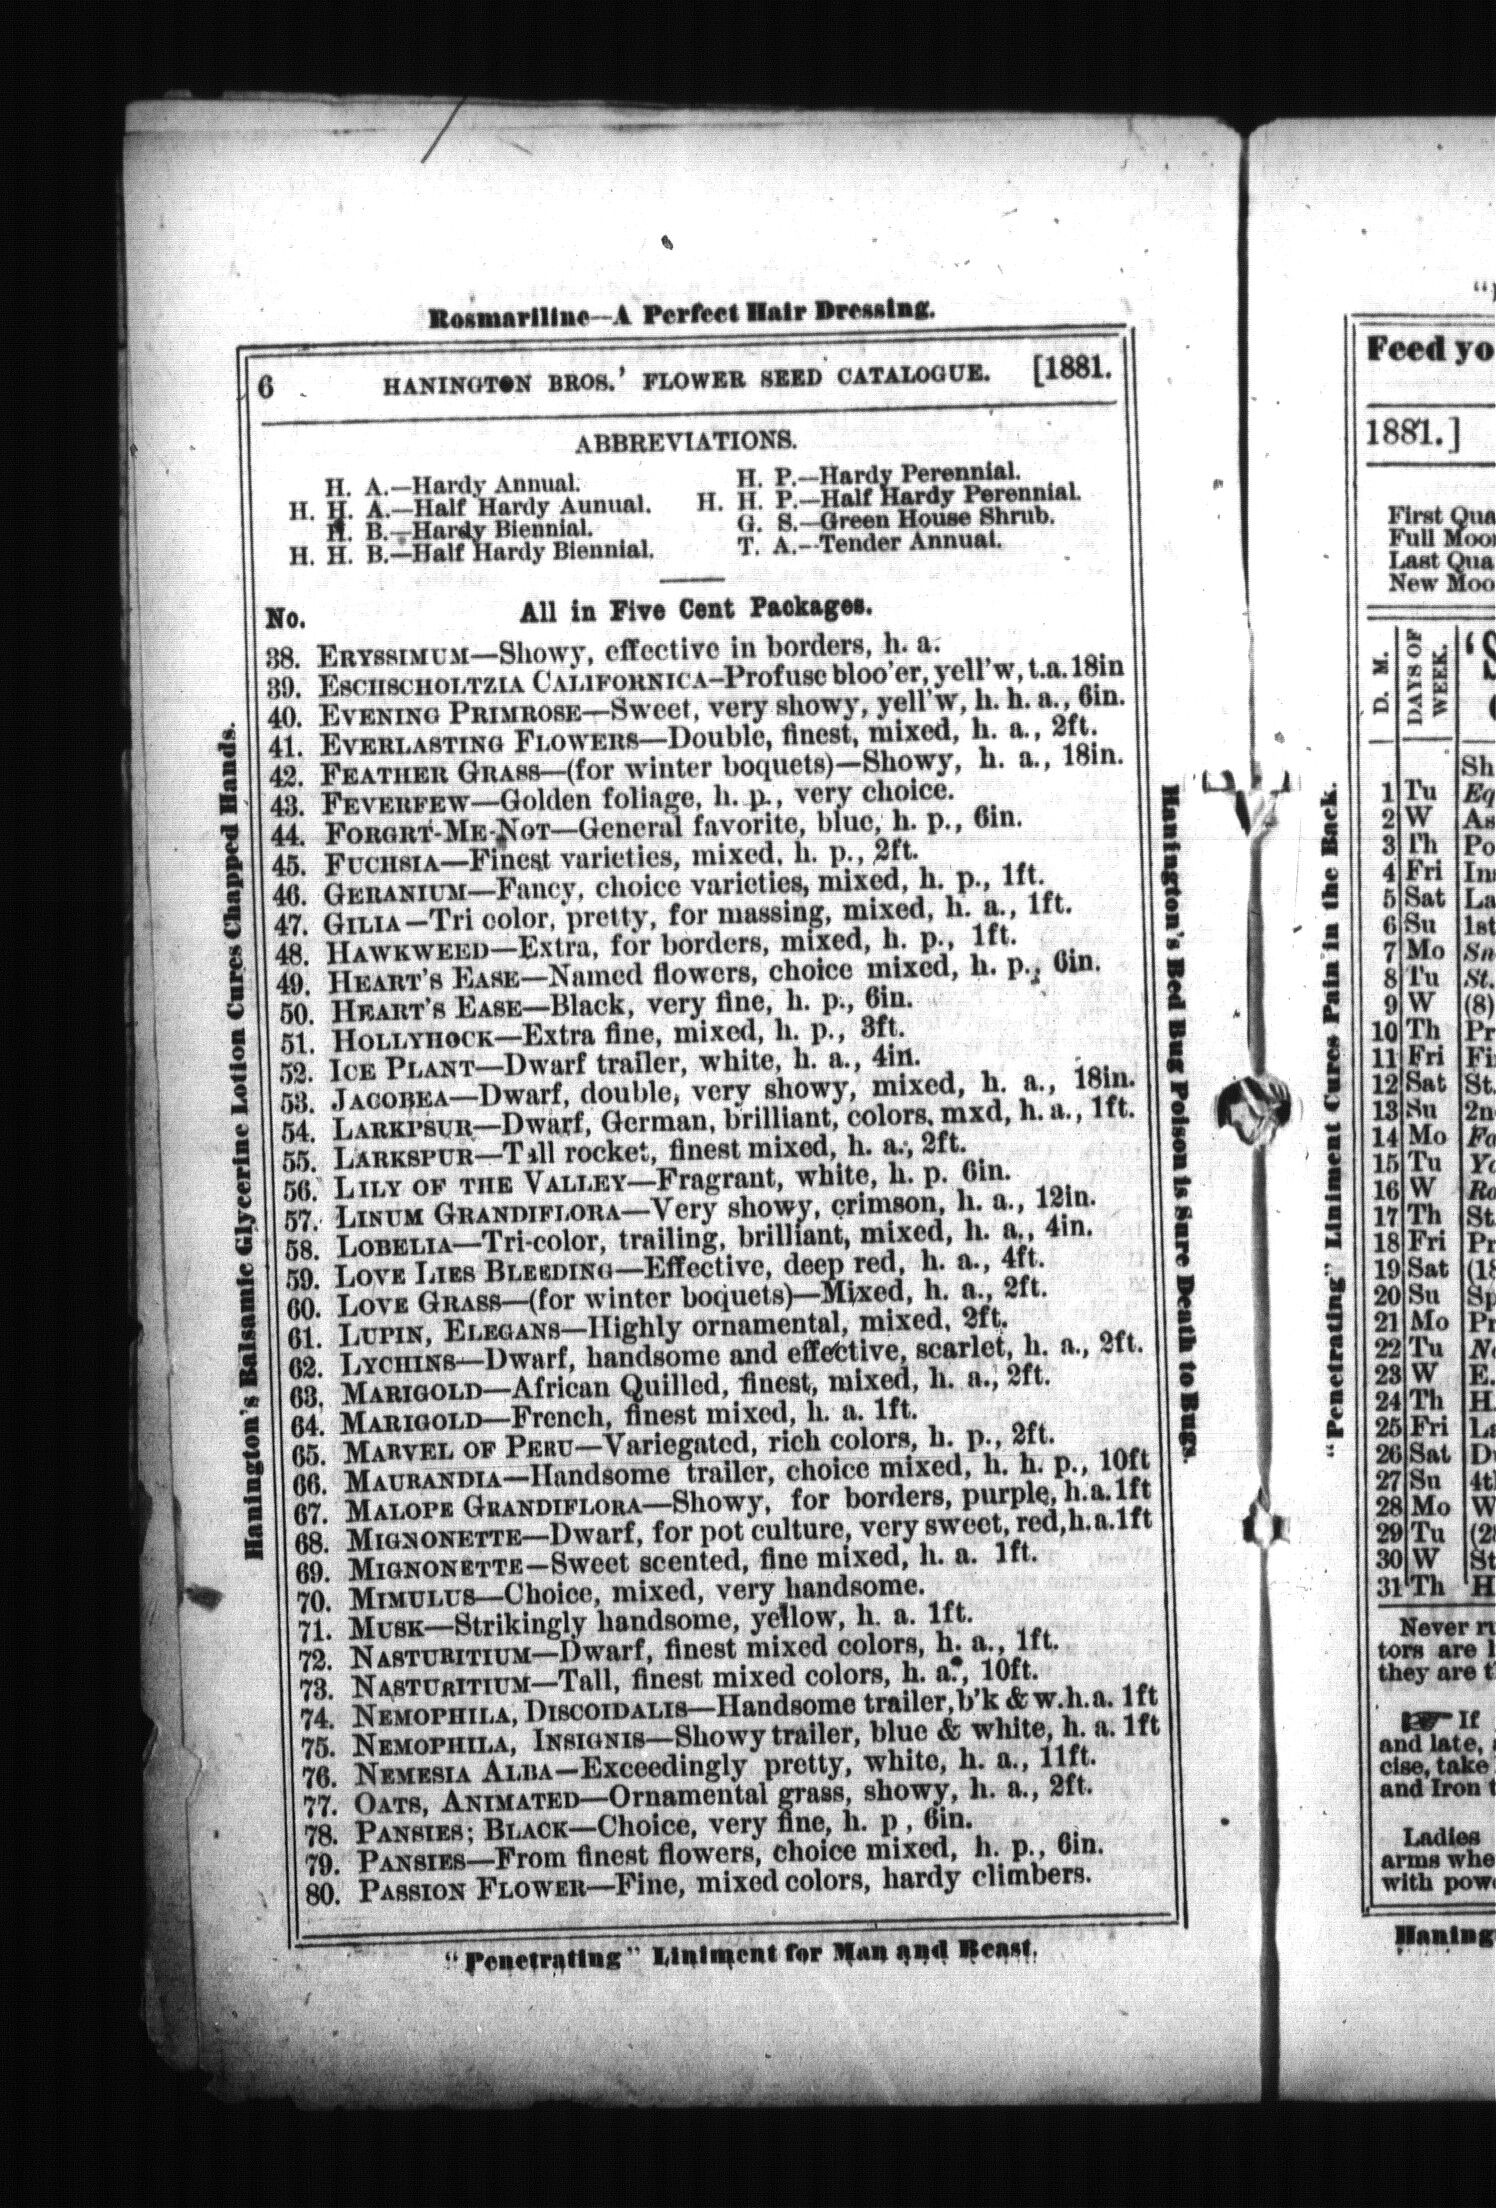 Rosmariline—A Perfect Hair Dressing.
6 HANINGTON BROS.' FLOWER SEED CATALOGUE. [1881.
ABBREVIATIONS.
H. A.—Hardy Annual. H. P.—Hardy Perennial.
H. H. A.—Half Hardy Aunual. H. H. P.—Half Hardy Perennial.
H. B.—Hardy Biennial. G. S.—Green House Shrub.
H. H. B.—Half Hardy Biennial. T. A.—Tender Annual.
No. All in Five Cent Packages.
38. ERYSSIMUM—Showy, effective in borders, h. a.
39. ESCHSCHOLTZIA CALIFORNICA-Profuse bloo'er, yell'w, t.a. 18in
40. EVENING PRIMROSE—Sweet, very showy, yell'w, h. h. a., 6in.
41. EVERLASTING FLOWERS—Double, finest, mixed, h. a., 2ft.
42. FEATHER GRASS—(for winter boquets)—Showy, h. a., 18in.
43. FEVERFEW—Golden foliage, h. p., very choice.
44. FORGRT-ME-NOT—General favorite, blue, h. p., 6in.
45. FUCHSIA—Finest varieties, mixed, h. p., 2ft.
46. GERANIUM—Fancy, choice varieties, mixed, h. p., 1ft.
47. GILIA—Tri color, pretty, for massing, mixed, h. a., 1ft.
48. HAWKWEED—Extra, for borders, mixed, h. p., 1ft.
49. HEART'S EASE—Named flowers, choice mixed, h. p., 6in.
50. HEART'S EASE—Black, very fine, h. p., 6in.
51. HOLLYHOCK—Extra fine, mixed, h. p., 3ft.
52. ICE PLANT—Dwarf trailer, white, h. a., 4in.
53. JACOBEA—Dwarf, double, very showy, mixed, h. a., 18in.
54. LARKPSUR—Dwarf, German, brilliant, colors, mxd, h. a., 1ft.
55. LARKSPUR—Tall rocket, finest mixed, h. a., 2ft.
56. LILY OF THE VALLEY—Fragrant, white, h. p. 6in.
57. LINUM GRANDIFLORA—Very showy, crimson, h. a., 12in.
58. LOBELIA—Tri-color, trailing, brilliant, mixed, h. a., 4in.
59. LOVE LIES BLEEDING—Effective, deep red, h. a., 4ft.
60. LOVE GRASS—(for winter boquets)—Mixed, h. a., 2ft.
61. LUPIN, ELEGANS—Highly ornamental, mixed, 2ft.
62. LYCHINS—Dwarf, handsome and effective, scarlet, h. a., 2ft.
63. MARIGOLD—African Quilled, finest, mixed, h. a., 2ft.
64. MARIGOLD—French, finest mixed, h. a. 1ft.
65. MARVEL OF PERU—Variegated, rich colors, h. p., 2ft.
66. MAURANDIA—Handsome trailer, choice mixed, h. h. p., 10ft
67. MALOPE GRANDIFLORA—Showy, for borders, purple, h.a. 1ft
68. MIGNONETTE—Dwarf, for pot culture, very sweet, red, h.a. 1ft
69. MIGNONETTE—Sweet scented, fine mixed, h. a. 1ft.
70. MIMULUS—Choice, mixed, very handsome.
71. MUSK—Strikingly handsome, yellow, h. a. 1ft.
72. NASTURITIUM—Dwarf, finest mixed colors, h. a., 1ft.
73. NASTURITIUM—Tall, finest mixed colors, h. a., 10ft.
74. NEMOPHILA, DISCOIDALIS—Handsome trailer, b'k & w. h.a. 1ft
75. NEMOPHILA, INSIGNIS—Showy trailer, blue & white, h. a. 1ft
76. NEMESIA ALBA—Exceedingly pretty, white, h. a., 11ft.
77. OATS, ANIMATED—Ornamental grass, showy, h. a., 2ft.
78. PANSIES; BLACK—Choice, very fine, h. p, 6in.
79. PANSIES—From finest flowers, choice mixed, h. p., 6in.
80. PASSION FLOWER—Fine, mixed colors, hardy climbers.
"Penetrating" Liniment for Man and Beast.
Hanington's Balsamic Glycerine Lotion Cures Chapped Hands.
Hanington's Bed Bug Poison is Sure Death to Bugs.
"Penetrating" Liniment Cures Pain in the Back.
Feed yo
1881.]
First Qua
Full Moo
Last Qua
New Moo
D. M. DAYS OF WEEK.
Sh
1 Tu Eq
2 W As
3 Th Po
4 Fri In
5 Sat La
6 Su 1st
7 Mo Sn
8 Tu St.
9 W (8)
10 Th Pr
11 Fri Fi
12 Sat St.
13 Su 2n
14 Mo Fo
15 Tu Yo
16 W Ro
17 Th St
18 Fri Pr
19 Sat (18
20 Su Sp
21 Mo Pr
22 Tu No
23 W E.
24 Th H.
25 Fri La
26 Sat Du
27 Su 4th
28 Mo W
29 Tu (28
30 W St
31 Th H
Never ru
tors are l
they are t
If
and late,
cise, take
and Iron t
Ladies
arms whe
with powe
Haning